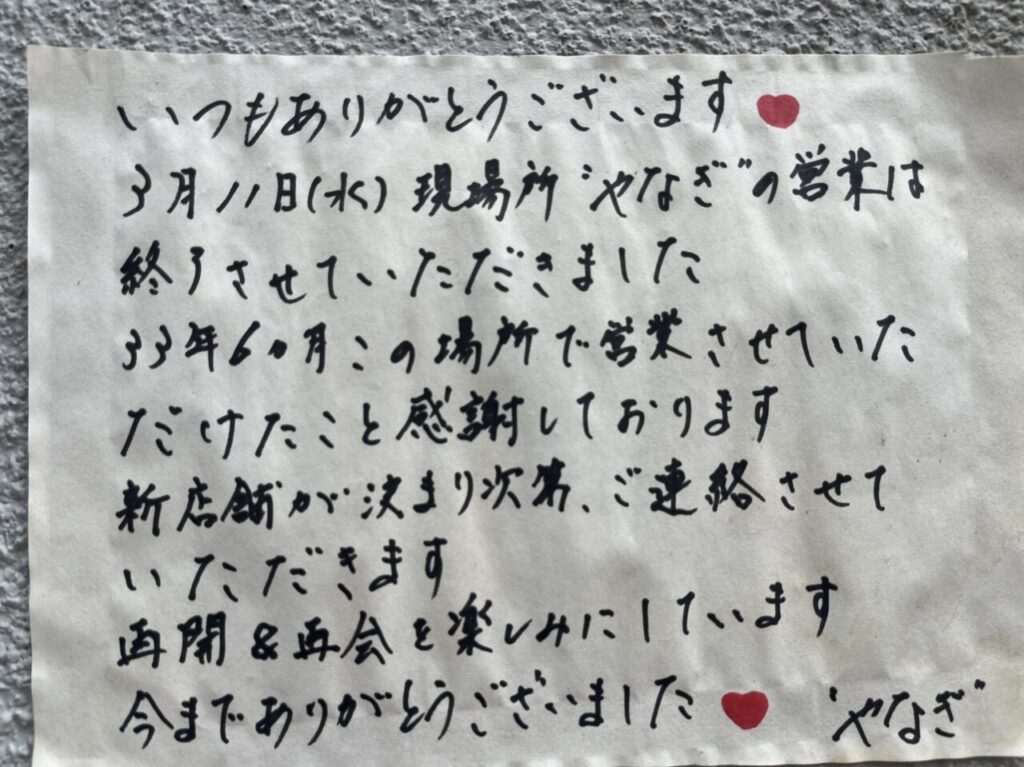 いつもありがとうございます
3月11日(水)現場所“やなぎ”の営業は
終了させていただきました
33年6カ月この場所で営業させていた
だけたこと感謝しております
新店舗が決まり次第、ご連絡させて
いただきます
再開&再会を楽しみにしています
今までありがとうございました “やなぎ”